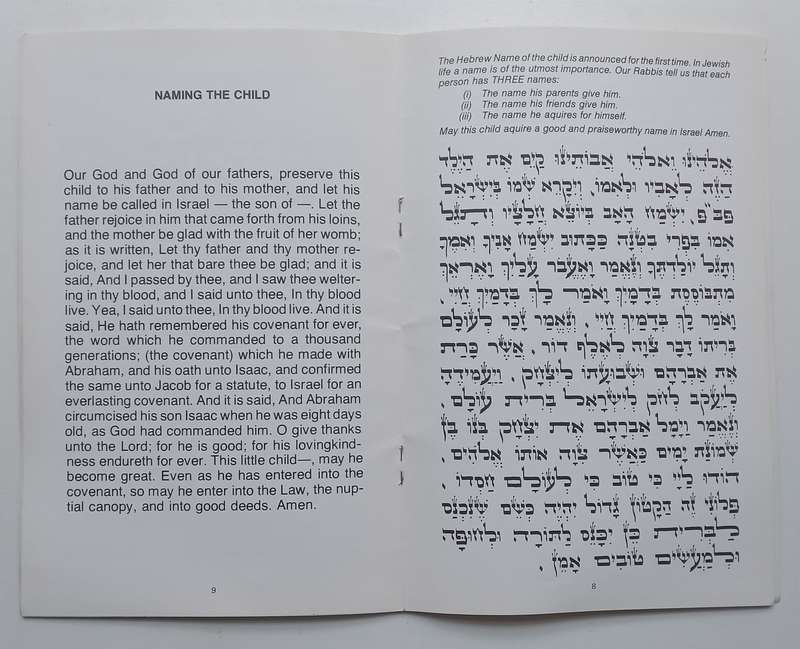 NAMING THE CHILD
Our God and God of our fathers, preserve this
child to his father and to his mother, and let his
name be called in Israel — the son of —. Let the
father rejoice in him that came forth from his loins,
and the mother be glad with the fruit of her womb;
as it is written, Let thy father and thy mother re-
joice, and let her that bare thee be glad; and it is
said, And I passed by thee, and I saw thee welter-
ing in thy blood, and I said unto thee, In thy blood
live. Yea, I said unto thee, In thy blood live. And it is
said, He hath remembered his covenant for ever,
the word which he commanded to a thousand
generations; (the covenant) which he made with
Abraham, and his oath unto Isaac, and confirmed
the same unto Jacob for a statute, to Israel for an
everlasting covenant. And it is said, And Abraham
circumcised his son Isaac when he was eight days
old, as God had commanded him. O give thanks
unto the Lord; for he is good; for his lovingkind-
ness endureth for ever. This little child—, may he
become great. Even as he has entered into the
covenant, so may he enter into the Law, the nup-
tial canopy, and into good deeds. Amen.
9
The Hebrew Name of the child is announced for the first time. In Jewish
life a name is of the utmost importance. Our Rabbis tell us that each
person has THREE names:
(i) The name his parents give him.
(ii) The name his friends give him.
(iii) The name he aquires for himself.
May this child aquire a good and praiseworthy name in Israel Amen.
אֱלֹהֵינוּ וֵאלֹהֵי אֲבוֹתֵינוּ קַיֵּם אֶת הַיֶּלֶד
הַזֶּה לְאָבִיו וּלְאִמּוֹ, וְיִקָּרֵא שְׁמוֹ בְּיִשְׂרָאֵל
פב״פ, יִשְׂמַח הָאָב בְּיוֹצֵא חֲלָצָיו וְתָגֵל
אִמּוֹ בִּפְרִי בִטְנָהּ כַּכָּתוּב יִשְׂמַח אָבִיךָ וְאִמֶּךָ
וְתָגֵל יוֹלַדְתֶּךָ וְנֶאֱמַר וָאֶעֱבֹר עָלַיִךְ וָאֶרְאֵךְ
מִתְבּוֹסֶסֶת בְּדָמָיִךְ וָאֹמַר לָךְ בְּדָמַיִךְ חֲיִי,
וָאֹמַר לָךְ בְּדָמַיִךְ חֲיִי, וְנֶאֱמַר זָכַר לְעוֹלָם
בְּרִיתוֹ דָּבָר צִוָּה לְאֶלֶף דּוֹר, אֲשֶׁר כָּרַת
אֶת אַבְרָהָם וּשְׁבוּעָתוֹ לְיִצְחָק, וַיַּעֲמִידֶהָ
לְיַעֲקֹב לְחֹק לְיִשְׂרָאֵל בְּרִית עוֹלָם,
וְנֶאֱמַר וַיָּמָל אַבְרָהָם אֶת יִצְחָק בְּנוֹ בֶּן
שְׁמוֹנַת יָמִים כַּאֲשֶׁר צִוָּה אוֹתוֹ אֱלֹהִים,
הוֹדוּ לַיְיָ כִּי טוֹב כִּי לְעוֹלָם חַסְדּוֹ,
פְּלוֹנִי זֶה הַקָּטוֹן גָּדוֹל יִהְיֶה כְּשֵׁם שֶׁנִּכְנַס
לַבְּרִית כֵּן יִכָּנֵס לְתוֹרָה וּלְחוּפָּה
וּלְמַעֲשִׂים טוֹבִים אָמֵן,
8